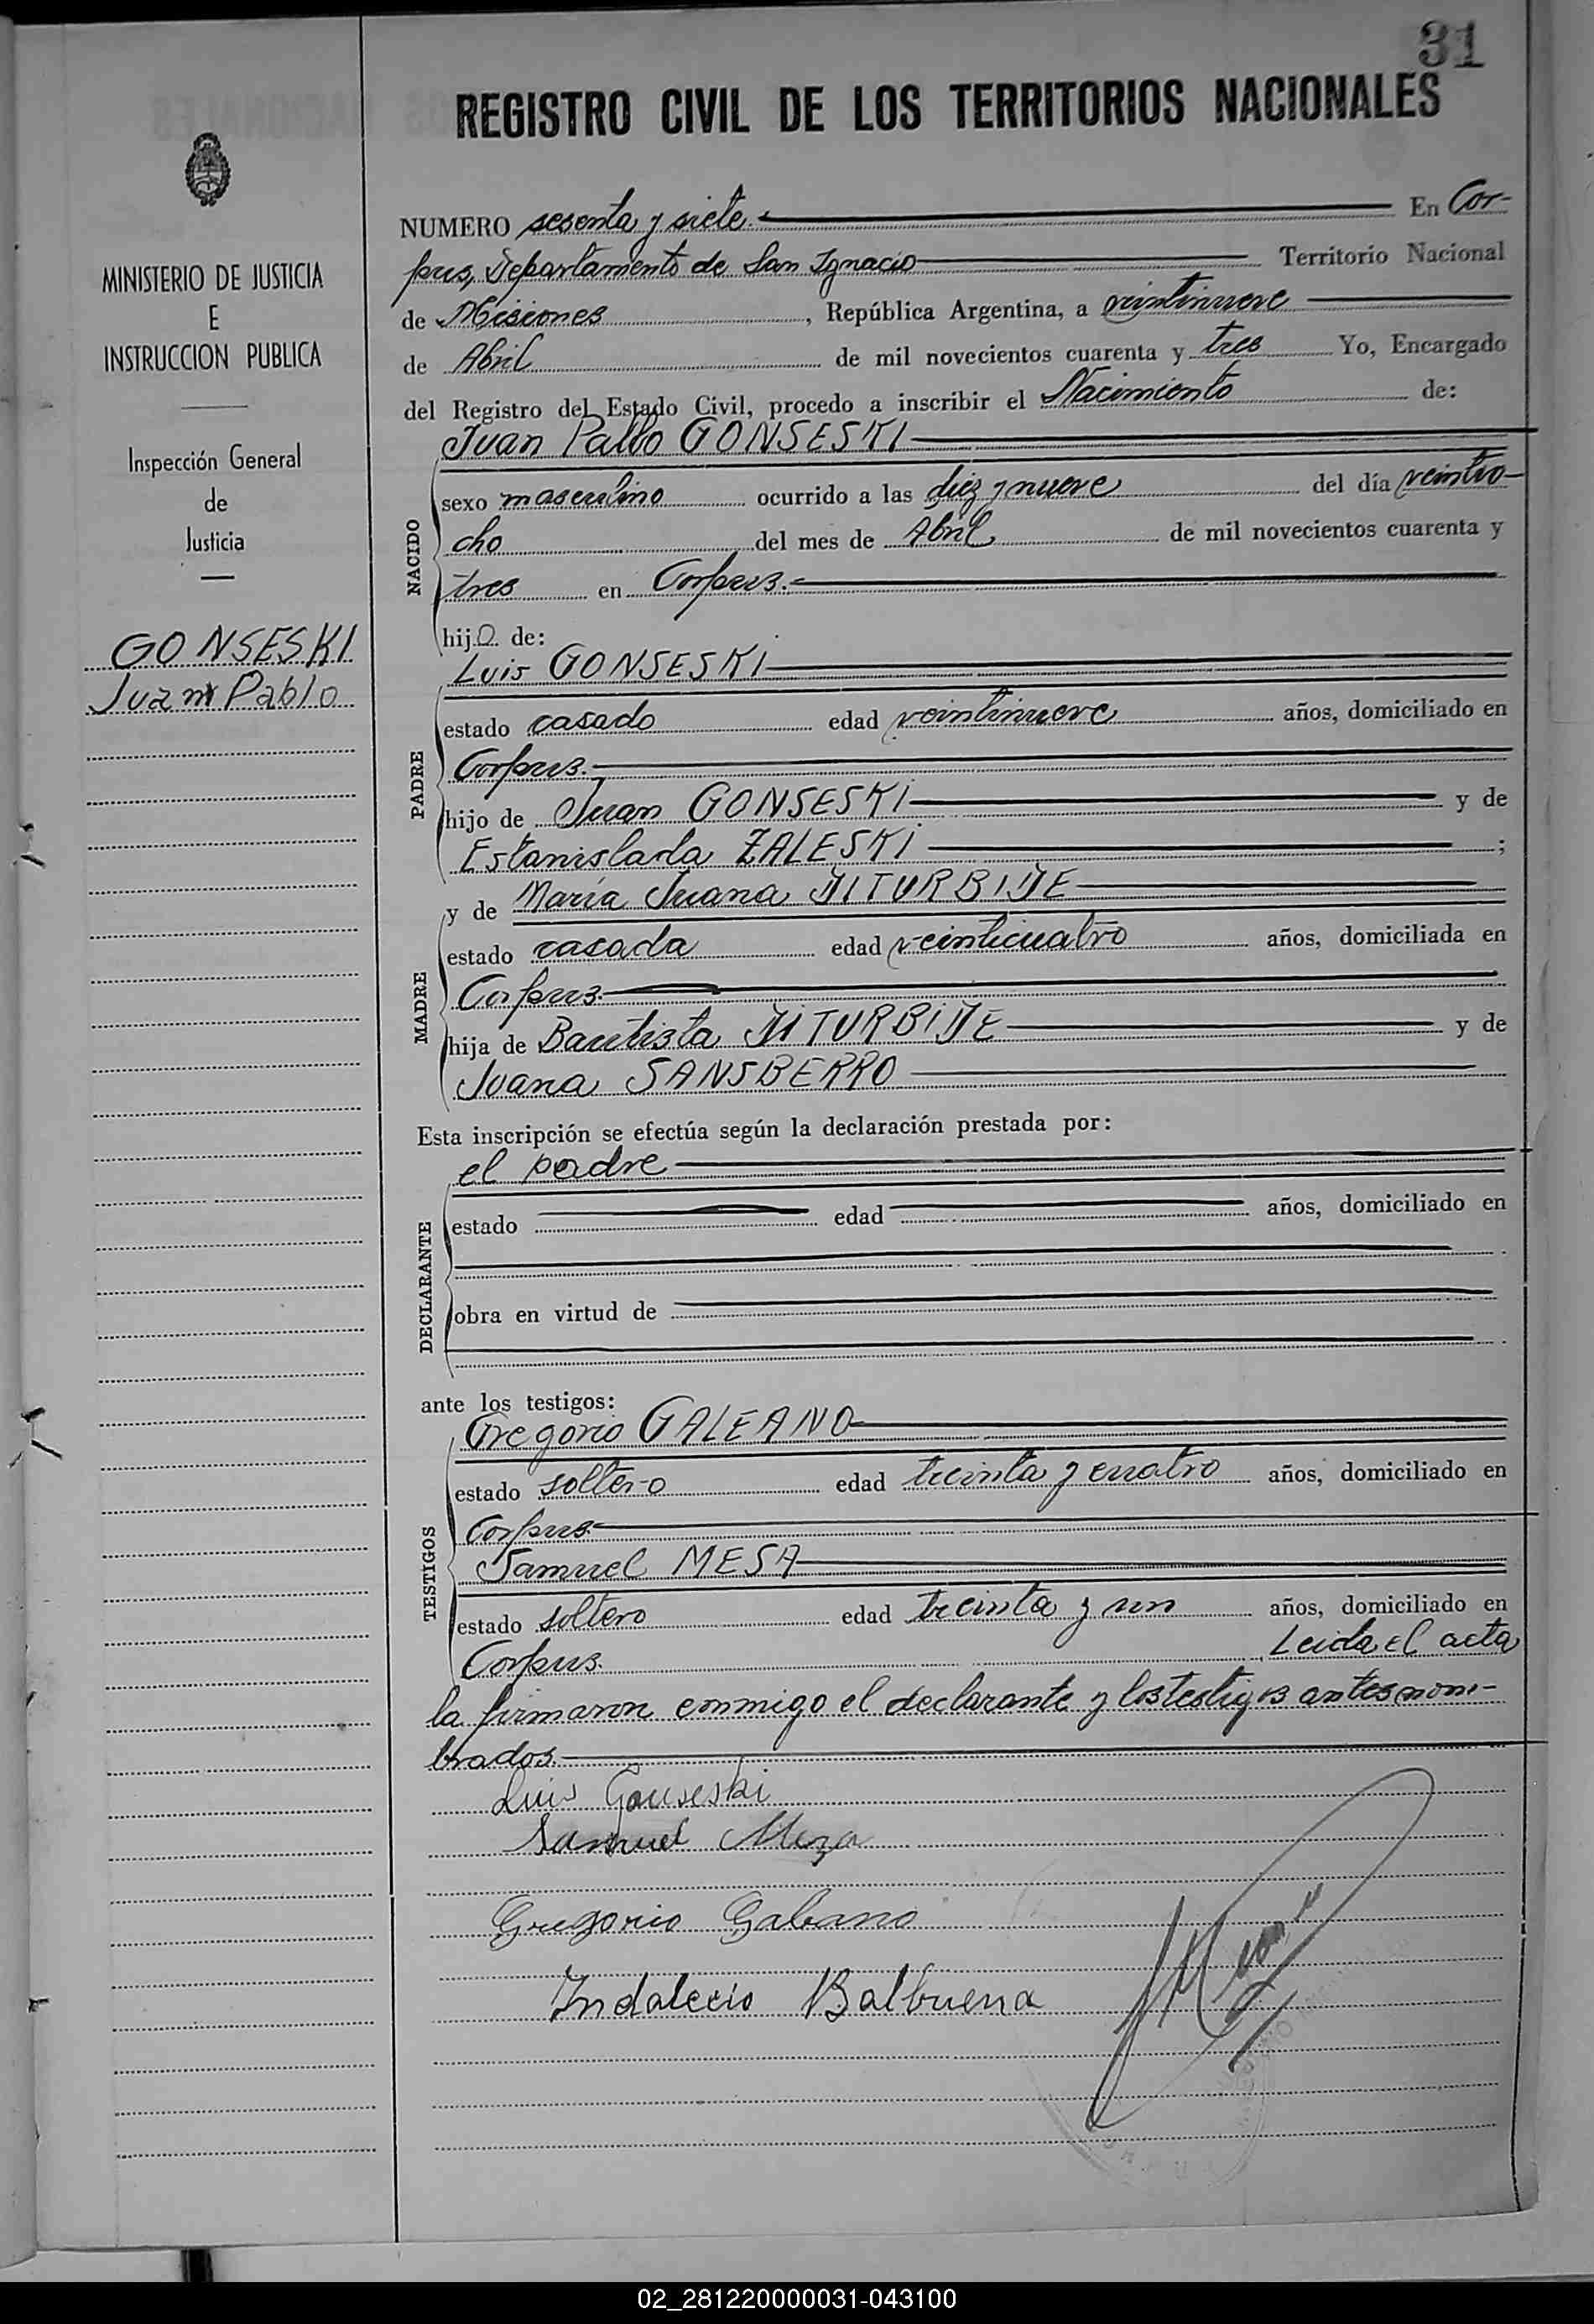 31
REGISTRO CIVIL DE LOS TERRITORIOS NACIONALES
MINISTERIO DE JUSTICIA
E
INSTRUCCION PUBLICA
Inspección General
de
Justicia
GONSESKI
Juan Pablo
NUMERO sesenta y siete.- En Cor-
pus, Departamento de San Ignacio Territorio Nacional
de Misiones, República Argentina, a veintinueve
de Abril de mil novecientos cuarenta y tres Yo, Encargado
del Registro del Estado Civil, procedo a inscribir el Nacimiento de:
NACIDO
Juan Pablo GONSESKI
sexo masculino ocurrido a las diez y nueve del día veintio-
cho del mes de Abril de mil novecientos cuarenta y
tres en Corpus.-
hijo de:
PADRE
Luis GONSESKI
estado casado edad veintinueve años, domiciliado en
Corpus.-
hijo de Juan GONSESKI y de
Estanislada ZALESKI ;
MADRE
y de María Juana
estado casada edad veinticuatro años, domiciliada en
Corpus.-
hija de Bautista y de
Juana SANSBERRO
Esta inscripción se efectúa según la declaración prestada por:
DECLARANTE
el padre
estado edad años, domiciliado en
obra en virtud de
ante los testigos:
TESTIGOS
Gregorio GALEANO
estado soltero edad treinta y cuatro años, domiciliado en
Corpus.-
Samuel MESA
estado soltero edad treinta y un años, domiciliado en
Corpus. Leida el acta
la firmaron conmigo el declarante y los testigos antes nom-
brados.-
Luis Gonseski
Samuel Meza
Gregorio Galeano
Indalecio Balbuena
02_281220000031-043100